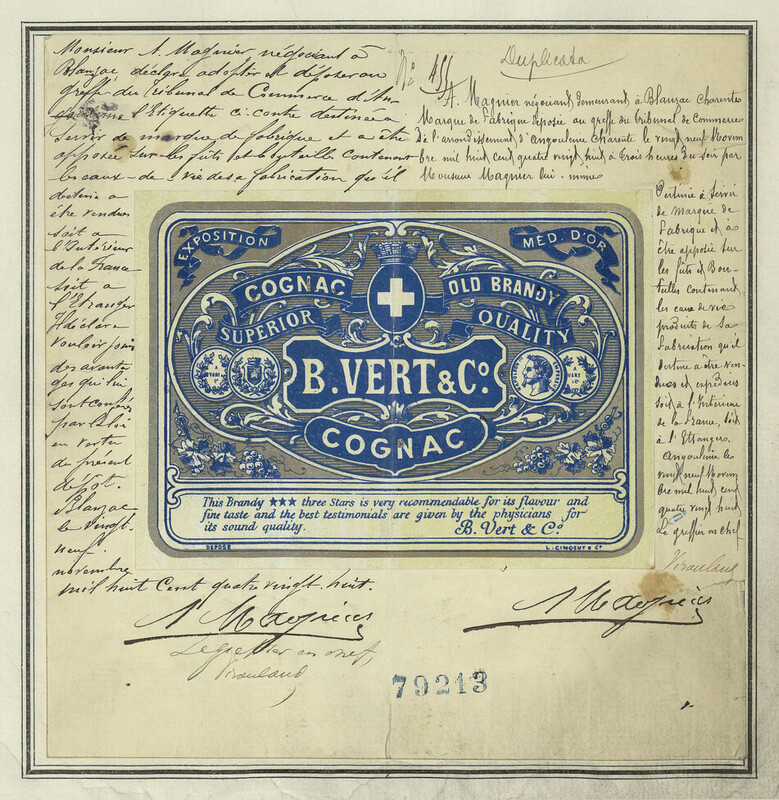 Monsieur A. Magnier négociant à
Blanzac, déclare adopter et déposer au
greffe du Tribunal de Commerce d'An-
goulême l'Etiquette ci-contre destinée à
Servir de marque de fabrique et à être
apposée sur les fûts et bouteilles contenant
les eaux-de-vie de sa fabrication qu'il
destine à
être vendues
soit à
l'Intérieur
de la France
soit à
l'Etranger
Il déclare
vouloir jouir
des avanta-
ges qui lui
sont conférés
par la loi
en vertu
du présent
dépôt.
Blanzac
le vingt-
neuf
novembre
mil huit Cent quatre vingt-huit.
A Magnier
Le greffier en chef,
Duplicata
No 455
A. Magnier négociant demeurant à Blanzac Charente
Marque de Fabrique déposée au greffe du tribunal de Commerce
de l'arrondissement d'Angoulême Charente le vingt neuf Novem
bre mil huit cent quatre vingt huit à trois heures du soir par
Monsieur Magnier lui-même
Destinée à servir
de Marque de
Fabrique et à
être apposée sur
les fûts et Bou-
teilles contenant
les eaux de vie
produits de sa
Fabrication qu'il
destine à être ven-
dues et expédiées
soit à l'Intérieur
de la France, soit
à l'Etranger.
Angoulême le
vingt neuf Novem
bre mil huit cent
quatre vingt huit
Le greffier en chef
A Magnier
EXPOSITION
MED. D'OR
COGNAC
OLD BRANDY
SUPERIOR
QUALITY
B. VERT & Co.
COGNAC
This Brandy ★★★ three Stars is very recommendable for its flavour and
fine taste and the best testimonials are given by the physicians for
its sound quality.
B. Vert & Co.
DEPOSÉ
79213